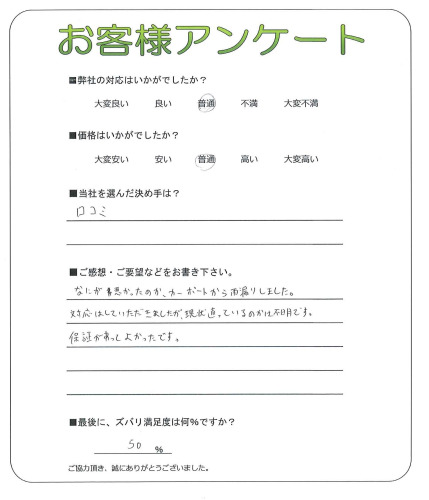 お客様アンケート
■弊社の対応はいかがでしたか？
大変良い 良い 普通 不満 大変不満
■価格はいかがでしたか？
大変安い 安い 普通 高い 大変高い
■当社を選んだ決め手は？
口コミ
■ご感想・ご要望などをお書き下さい。
なにが悪かったのか、カーポートから雨漏りしました。
対応はしていただきましたが、現状直っているのかは不明です。
保証があってよかったです。
■最後に、ズバリ満足度は何%ですか？
50 %
ご協力頂き、誠にありがとうございました。